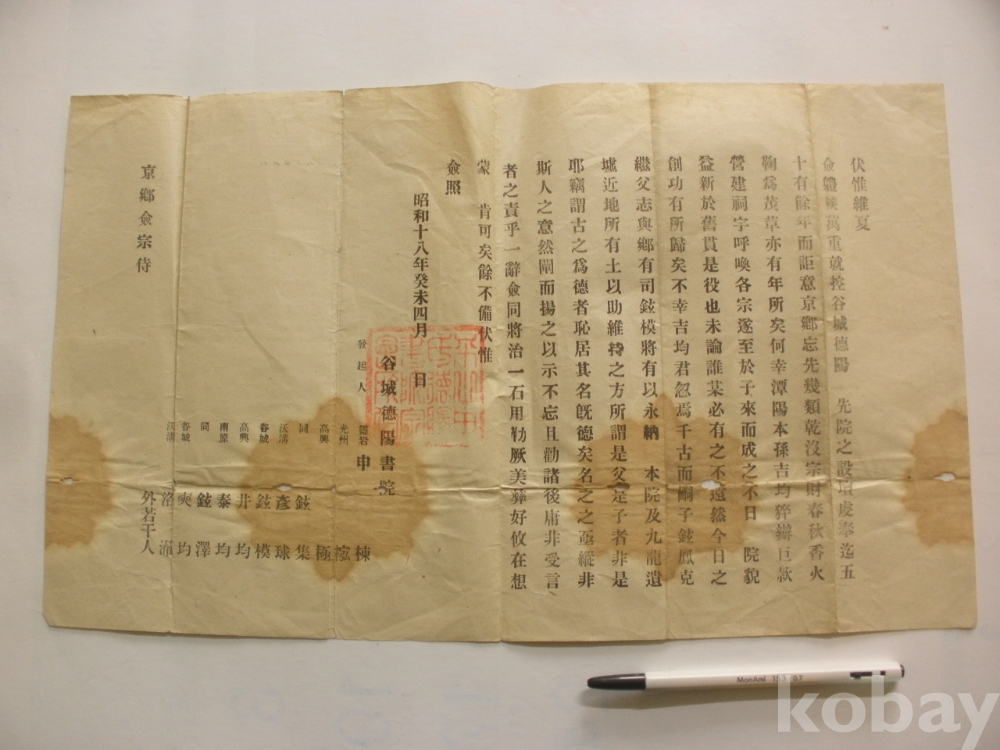 伏惟維夏
僉體 萬重就控谷城德陽 先院之設 虔奉迄五
十有餘年而詎意京鄉忘先幾類乾沒宗財春秋香火
鞠爲茂草亦有年所矣何幸潭陽本孫吉均猝辦巨款
營建祠宇呼喚各宗遂至於子來而成之不日 院貌
益新於舊貫是役也未論誰某必有之不 然今日之
創功有所歸矣不幸吉均君忽爲千古而嗣子鉉鳳克
繼父志與鄉有司鉉模將有以永納 本院及九龍遺
墟近地所有土以助維持之方所謂是父是子者非是
耶竊謂古之爲德者恥居其名旣德矣名之之 縱非
斯人之意然闡而揚之以示不忘且勸諸後庸非受言
者之責乎一辭僉同將治一石用勒厥美彛好攸在想
蒙 肯可矣餘不備伏惟
僉照
昭和十八年癸未四月 日
谷城德陽書院
發起人 申 棟
光州
高興 極
同 鉉集
沃溝 彥球
谷城 鉉模
高興 井均
南原 泰均
同 鉉澤
谷城 奭均
沃溝
外若干人
京鄉僉宗侍
MonAmi 153 0.7
kobay